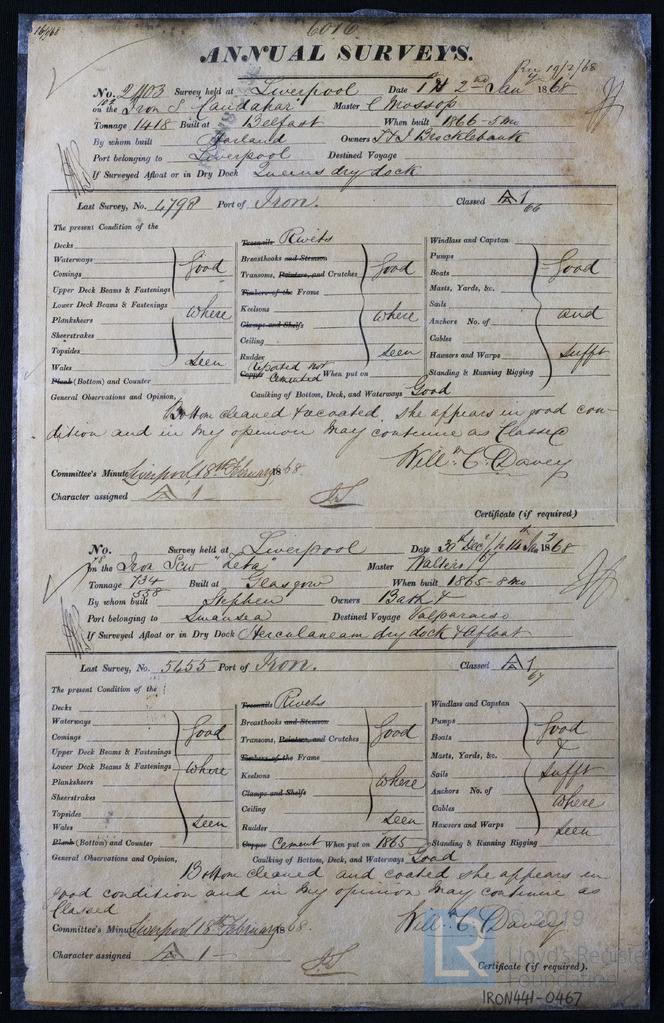 6016
ANNUAL SURVEYS.
Rec 19/2/68
No. 21103 Survey held at Liverpool Date 1st & 2nd Jan 1868
on the Iron S Candahar Master C Mossop
Tonnage 1418 Built at Belfast When built 1866-5mo
By whom built Harland Owners T & J Brocklebank
Port belonging to Liverpool Destined Voyage
If Surveyed Afloat or in Dry Dock Queens dry dock
Last Survey, No. 4798 Port of Iron. Classed A 1 66
The present Condition of the
Decks
Waterways
Comings
Upper Deck Beams & Fastenings
Lower Deck Beams & Fastenings
Planksheers
Sheerstrakes
Topsides
Wales
Plank (Bottom) and Counter
Good
where
seen
Treenails Rivets
Breasthooks and Stemson
Transoms, Pointers, and Crutches
Timbers of the Frame
Keelsons
Clamps and Shelfs
Ceiling
Rudder
Copper Repaired not Cemented When put on
Good
where
seen
Windlass and Capstan
Pumps
Boats
Masts, Yards, &c.
Sails
Anchors No. of
Cables
Hawsers and Warps
Standing & Running Rigging
Good
and
sufft
General Observations and Opinion, Caulking of Bottom, Deck, and Waterways Good
Bottom cleaned & coated. She appears in good con-
dition and in my opinion may continue as Classed
Willm C. Davey
Committee's Minute Liverpool 18th February 1868
Character assigned A 1 -
Certificate (if required)
No. Survey held at Liverpool Date 30th Dec/67 14th Jan 1868
on the Iron Scw "Zeta" Master Walters
Tonnage 734 558 Built at Glasgow When built 1865-8mo
By whom built Stephen Owners Bath &
Port belonging to Swansea Destined Voyage Valparaiso
If Surveyed Afloat or in Dry Dock Herculaneam dry dock & afloat
Last Survey, No. 5655 Port of Iron. Classed A 1 67
The present Condition of the
Decks
Waterways
Comings
Upper Deck Beams & Fastenings
Lower Deck Beams & Fastenings
Planksheers
Sheerstrakes
Topsides
Wales
Plank (Bottom) and Counter
Good
where
seen
Treenails Rivets
Breasthooks and Stemson
Transoms, Pointers, and Crutches
Timbers of the Frame
Keelsons
Clamps and Shelfs
Ceiling
Rudder
Copper Cement When put on 1865
Good
where
seen
Windlass and Capstan
Pumps
Boats
Masts, Yards, &c.
Sails
Anchors No. of
Cables
Hawsers and Warps
Standing & Running Rigging
Good
&
sufft
where
seen
General Observations and Opinion, Caulking of Bottom, Deck, and Waterways Good
Bottom cleaned and coated she appears in
good condition and in my opinion may continue as
Classed
Willm C. Davey
Committee's Minute Liverpool 18th February 1868.
Character assigned A 1 -
Certificate (if required).
LR © 2019
Lloyd's Register
Foundation
IRON441-0467